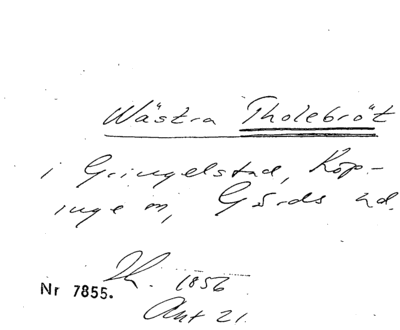 Wästra Tholebröt
i Gringelstad, Köp-
inge sn, Gärds hd.
Th. 1856
Nr 7855.
Akt 21.